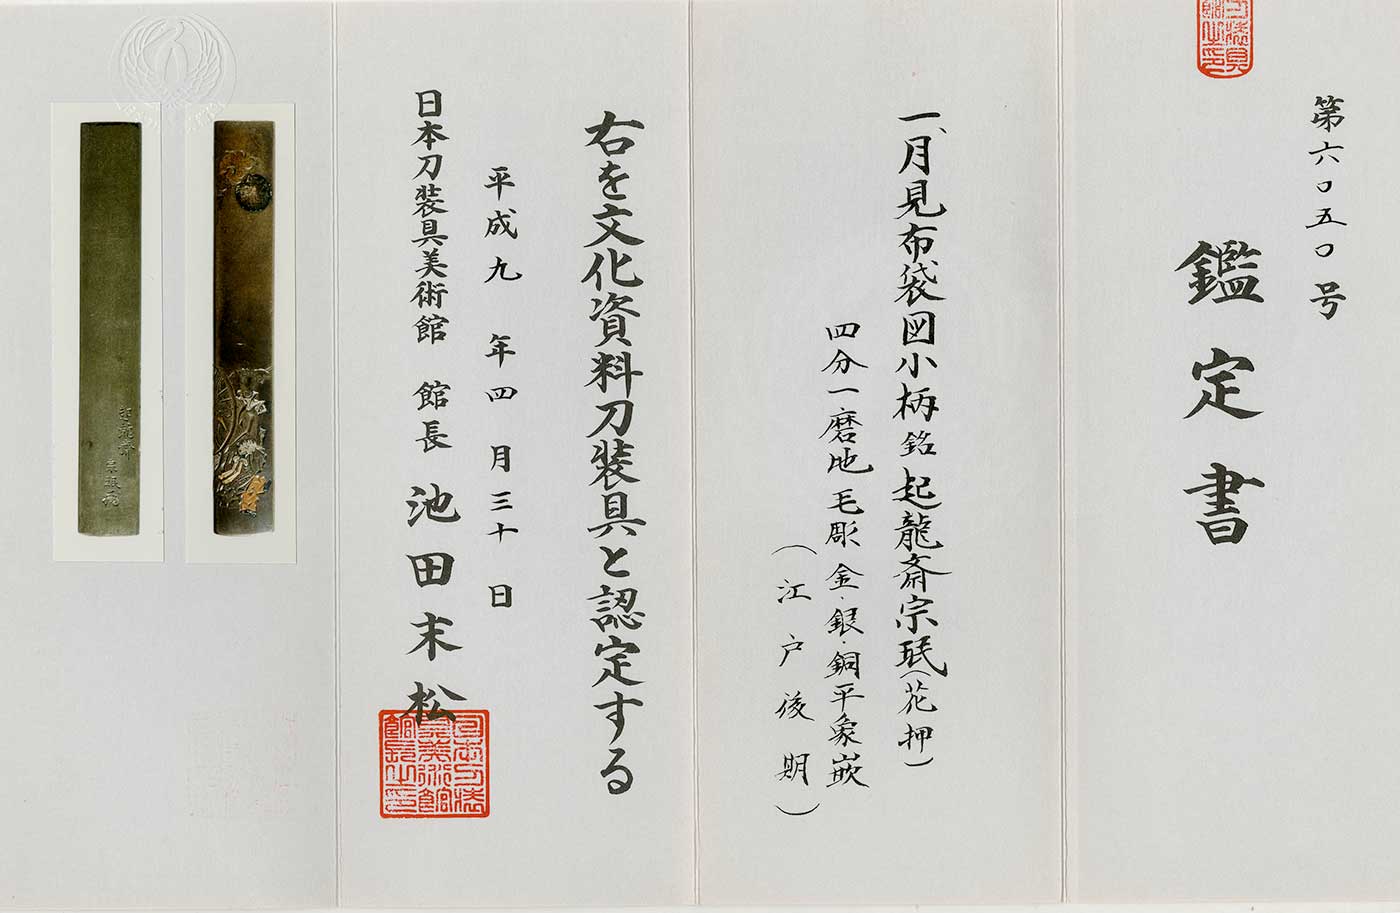 第六〇五〇号
鑑定書
一、月見布袋図小柄 銘 起龍斎宗珉(花押)
四分一磨地 毛彫 金・銀・銅平象嵌
(江戸後期)
右を文化資料刀装具と認定する
平成九年四月三十日
日本刀装具美術館 館長 池田末松